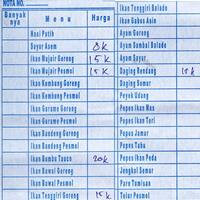 NOTA NO.
Banyak nya
Menu
Harga
Nasi Putih
Sayur Asem 8k
Ikan Mujair Goreng 15k
Ikan Mujair Pesmol 15k
Ikan Kembung Goreng
Ikan Kembung Pesmol
Ikan Gurame Goreng
Ikan Gurame Pesmol
Ikan Bandeng Goreng
Ikan Bandeng Pesmol
Ikan Bumbu Tauco 20k
Ikan Bawal Goreng
Ikan Bawal Pesmol
Ikan Tenggiri Goreng 15k
Ikan Tenggiri Balado
Ikan Gabus Asin
Ayam Goreng
Ayam Sambal Balado
Ayam Sayur
Daging Rendang 15k
Daging Semur
Peyek Udang
Pepes Ikan Mas
Pepes Ikan Teri
Pepes Jamur
Pepes Tahu
Pepes Ikan Peda
Jengkol Semur
Pare Tumisan
Telor Pesmol